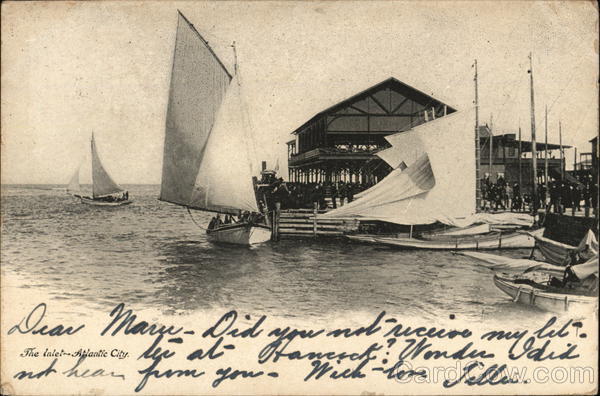 Dear Marie - Did you not receive my let-
The Inlet--Atlantic City. ter at Hancock? Wonder I did
not hear from you - With love
CardCow.com